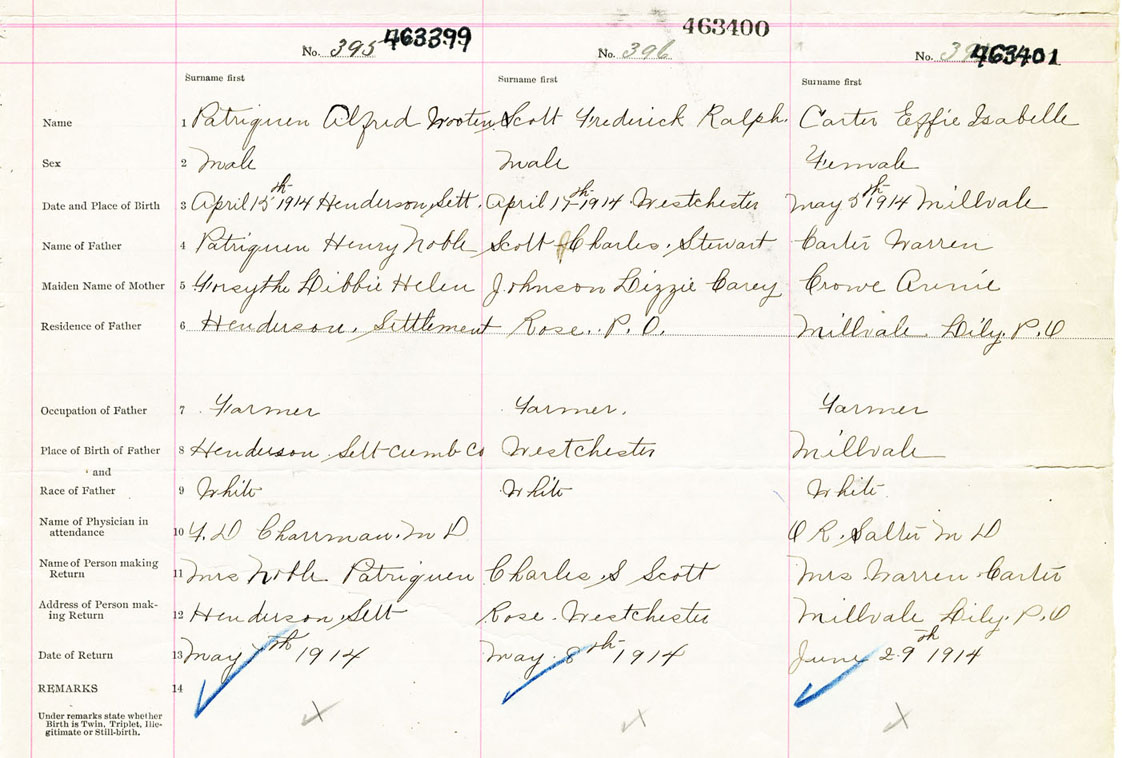 463400
No. 395 463399 No. 396 No. 463401
Surname first Surname first Surname first
Name 1 Patriquen Alfred Wooten Scott Frederick Ralph. Carter Effie Isabelle
Sex 2 Male Male Female
Date and Place of Birth 3 April 15th 1914 Henderson Sett. April 17th 1914 Westchester May 5th 1914 Millvale
Name of Father 4 Patriquen Henry Noble Scott Charles Stewart Carter Warren
Maiden Name of Mother 5 Forsythe Libbie Helen Johnson Lizzie Carey Crowe Annie
Residence of Father 6 Henderson Settlement Rose. P. O. Millvale Lily. P. O
Occupation of Father 7 Farmer Farmer. Farmer
Place of Birth of Father 8 Henderson Sett Cumb Co Westchester Millvale
and
Race of Father 9 White White White
Name of Physician in
attendance 10 F. D Charman. M D. O R. Salter M D
Name of Person making
Return 11 Mrs Noble Patriquen Charles S Scott Mrs Warren Carter
Address of Person mak-
ing Return 12 Henderson Sett Rose. Westchester Millvale Lily. P. O
Date of Return 13 May th 1914 May 8th 1914 June 29th 1914
REMARKS 14
Under remarks state whether
Birth is Twin, Triplet, Ille-
gitimate or Still-birth.